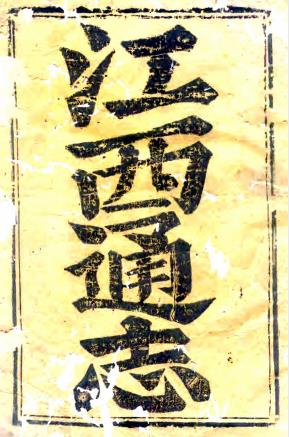 江西通志